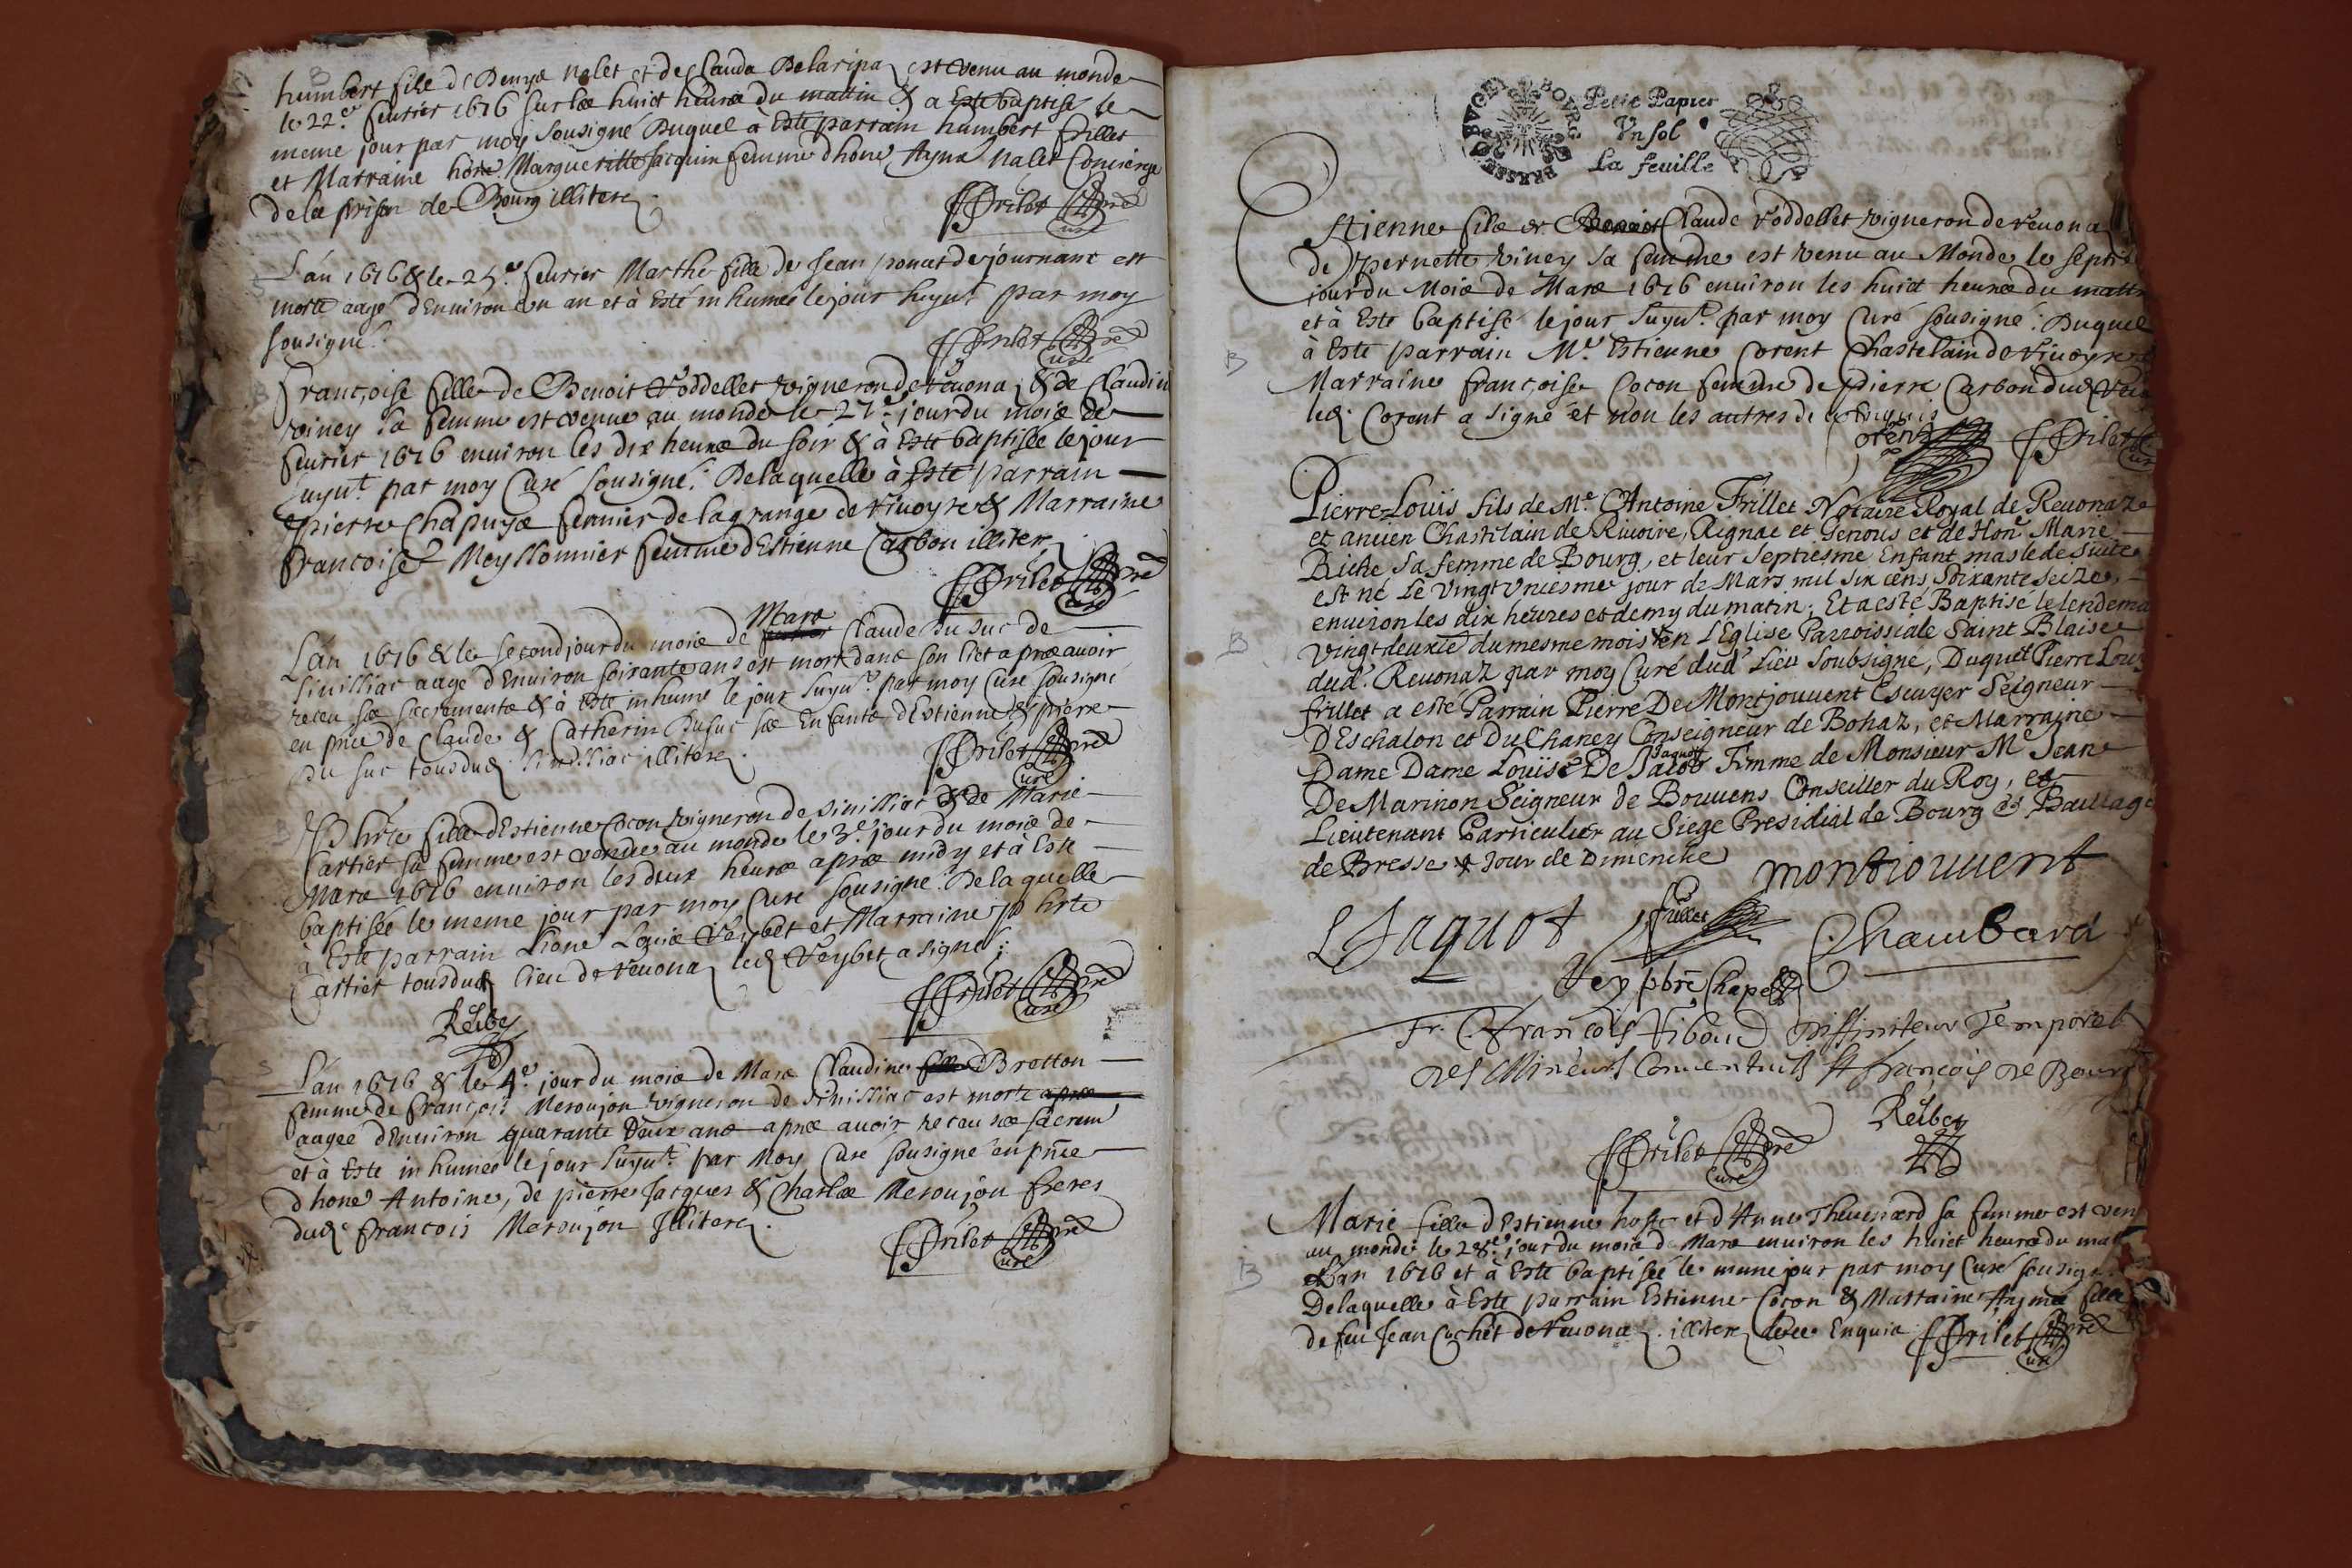 B
humbert filz de Denys nalet et de Clauda Delaripaz est venu au monde
le 22.e feurier 1676 sur lés huict heures du mattin & a Esté baptisé le
meme jour par moy Sousigné Duquel à Esté parrain humbert frillet
et Marraine hône. Margueritte Jacquin femme d'hone Ayme nalet Concierge
de la prison de Bourg illiterez.
FFrilet pre
Curé
S
L'an 1676 & le 25.e feurier Marthe fille de Jean ponat de journant est
morte aagé d'Enuiron vn an et à Esté inhumée le jour suyut. par moy
sousigné.
FFrilet pre
Curé
B
Françoise fille de Benoit Voddellet vigneron de reuonaz & de Claudin
viney sa femme est venue au monde le 27.e jour du mois de
feurier 1676 enuiron les dix heures du soir & à Esté baptisée le jour
suyut. par moy Curé Sousigné. De laquelle à Esté parrain
pierre Chapuys fermier de la grange de riuoyre & Marraine
françoise Meyssonnier femme d'Estienne Carbon illiterez
FFrilet pre
Curé
Mars
L'an 1676 & le second jour du mois de feurier Claude Du suc de
Simillias aagé d'Enuiron soixante ans est mort dans son lict apres auoir
receu ses sacrements & à Esté inhumé le jour suyut. par moy Curé sousigné
en pnce de Claude & Catherin Dusuc ses Enfants d'Estienne & pierre
Du suc tousdud. Simillias illiterez.
FFrilet pre
Curé
B
Phtte fille d'Estienne Cocon vigneron de simillias & de Marie
Cartier sa femme est venue au monde le 3.e jour du mois de
Mars 1676 enuiron les deux heures apres midy et à Esté
baptisée le meme jour par moy Curé sousigné. De laquelle
à Esté parrain hone Louis Veybet et Marraine phtte
Cartier tousdud. lieu de reuonaz led. Veybet a signé
FFrilet pre
Curé
Reibey
S
L'an 1676 & le 4.e jour du mois de Mars Claudine fille Bretton
femme de françois Meroujon vigneron de simillias est morte apres
aagée d'Enuiron quarante deux ans apres auoir receu ses sacrem
et à Esté inhumée le jour suyut. par Moy Curé sousigné en pnce
d'hone Antoine, de pierre Jacques & Charles Meroujon freres
dud. françois Meroujon Illiterez.
FFrilet pre
Curé
BOURG BRESSE BVGEY
Petit Papier
Vn sol
La feuille
B
Estienne filz de Benoist Claude Voddellet vigneron de reuonaz
de pernette viney sa femme est venu au Monde le septi
jour du Mois de Mars 1676 enuiron les huict heures du matt
et à Esté baptisé le jour suyut. par moy Curé sousigné. Duquel
à Esté parrain M.e Estienne Corent Chastelain de riuoyre &
Marraine françoise Cocon femme de pierre Carbon dud. reuo
led. Corent a signé et non les autres de ce Enquis
Corent
FFrilet
Curé
B
Pierre Louis fils de M.e Anthoine Frillet Notaire Royal de Reuonaz
et ancien Chastelain de Riuoire, Rignac et Genous et de Hon.e Marie
Riche sa femme de Bourg, et leur septiesme Enfant masle de suite
est né Le vingt vniesme jour de Mars mil six cens soixante seize,
enuiron les dix heures et demy du matin, Et a esté Baptisé le lendema
vingt deuxie du mesme mois x en L'Eglise Parroissiale Saint Blaise
dud. Reuonaz par moy Curé dud. Lieu Soubsigné, Duquel Pierre Louis
frillet a esté Parrain Pierre De Montjouuent Escuyer Seigneur
D'Eschalon et Du Chaney Conseigneur de Bohaz, et Marrayne
Jaquot
Dame Dame Louise De Jacob Femme de Monsieur M.e Jean
De Marinon Seigneur de Bouuens Conseiller du Roy, et
Lieutenant Particulier au Siege Presidial de Bourg et Bailliage
de Bresse x Jour de Dimenche
montiouuent
L Jaquot
frillet
Chambard
Vey pbre Chape
Fr. François Tiboud Diffiniteur Temporel
des Mineurs Conuentuels St françois de Bourg
FFrilet pre
Curé
Reibey
B
Marie fille d'Estienne hoste et d'Anne Theuenard sa femme est ven
au monde le 28.e jour du mois de Mars enuiron les huict heures du mat
L'an 1676 et à Esté baptisée le meme jour par moy Curé sousigé
De laquelle à Esté parrain Estienne Cocon & Marraine Aymée fille
de feu Jean Cochet de reuonaz. illiterez de ce Enquis
FFrilet pre
Curé